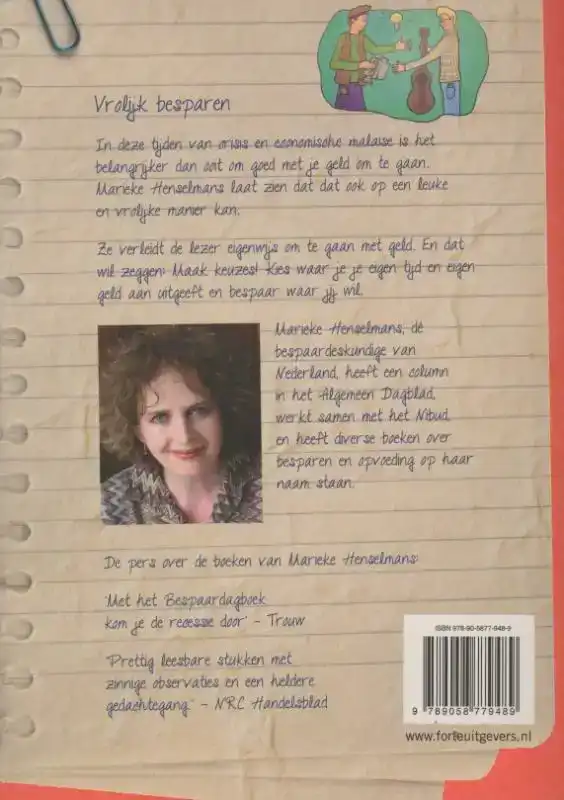 Vrolijk besparen
In deze tijden van crisis en economische malaise is het
belangrijker dan ooit om goed met je geld om te gaan.
Marieke Henselmans laat zien dat dat ook op een leuke
en vrolijke manier kan.
Ze verleidt de lezer eigenwijs om te gaan met geld. En dat
wil zeggen: Maak keuzes! Kies waar je je eigen tijd en eigen
geld aan uitgeeft en bespaar waar jij wil.
Marieke Henselmans, dé
bespaardeskundige van
Nederland, heeft een column
in het Algemeen Dagblad,
werkt samen met het Nibud,
en heeft diverse boeken over
besparen en opvoeding op haar
naam staan.
De pers over de boeken van Marieke Henselmans:
'Met het Bespaardagboek
kom je de recessie door' – Trouw
'Prettig leesbare stukken met
zinnige observaties en een heldere
gedachtegang.' – NRC Handelsblad
ISBN 978-90-5877-948-9
9 789058 779489
www.forteuitgevers.nl